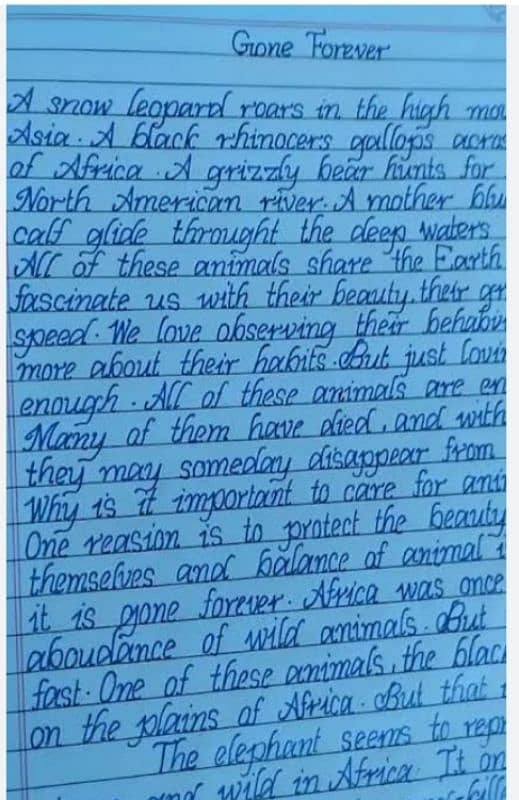 Gone Forever
A snow leopard roars in the high mou
Asia. A black rhinocers gallops acros
of Africa. A grizzly bear hunts for
North American river. A mother blu
calf glide throught the deep waters
All of these animals share the Earth
fascinate us with their beauty, their gr
speed. We love observing their behabi
more about their habits. But just lovin
enough. All of these animals are en
Many of them have died, and with
they may someday disappear from
Why is it important to care for ani
One reasion is to protect the beauty
themselves and balance of animal
it is gone forever. Africa was once
aboudance of wild animals. But
fast. One of these animals, the blac
on the plains of Africa. But that
The elephant seems to repr
and wild in Africa. It on